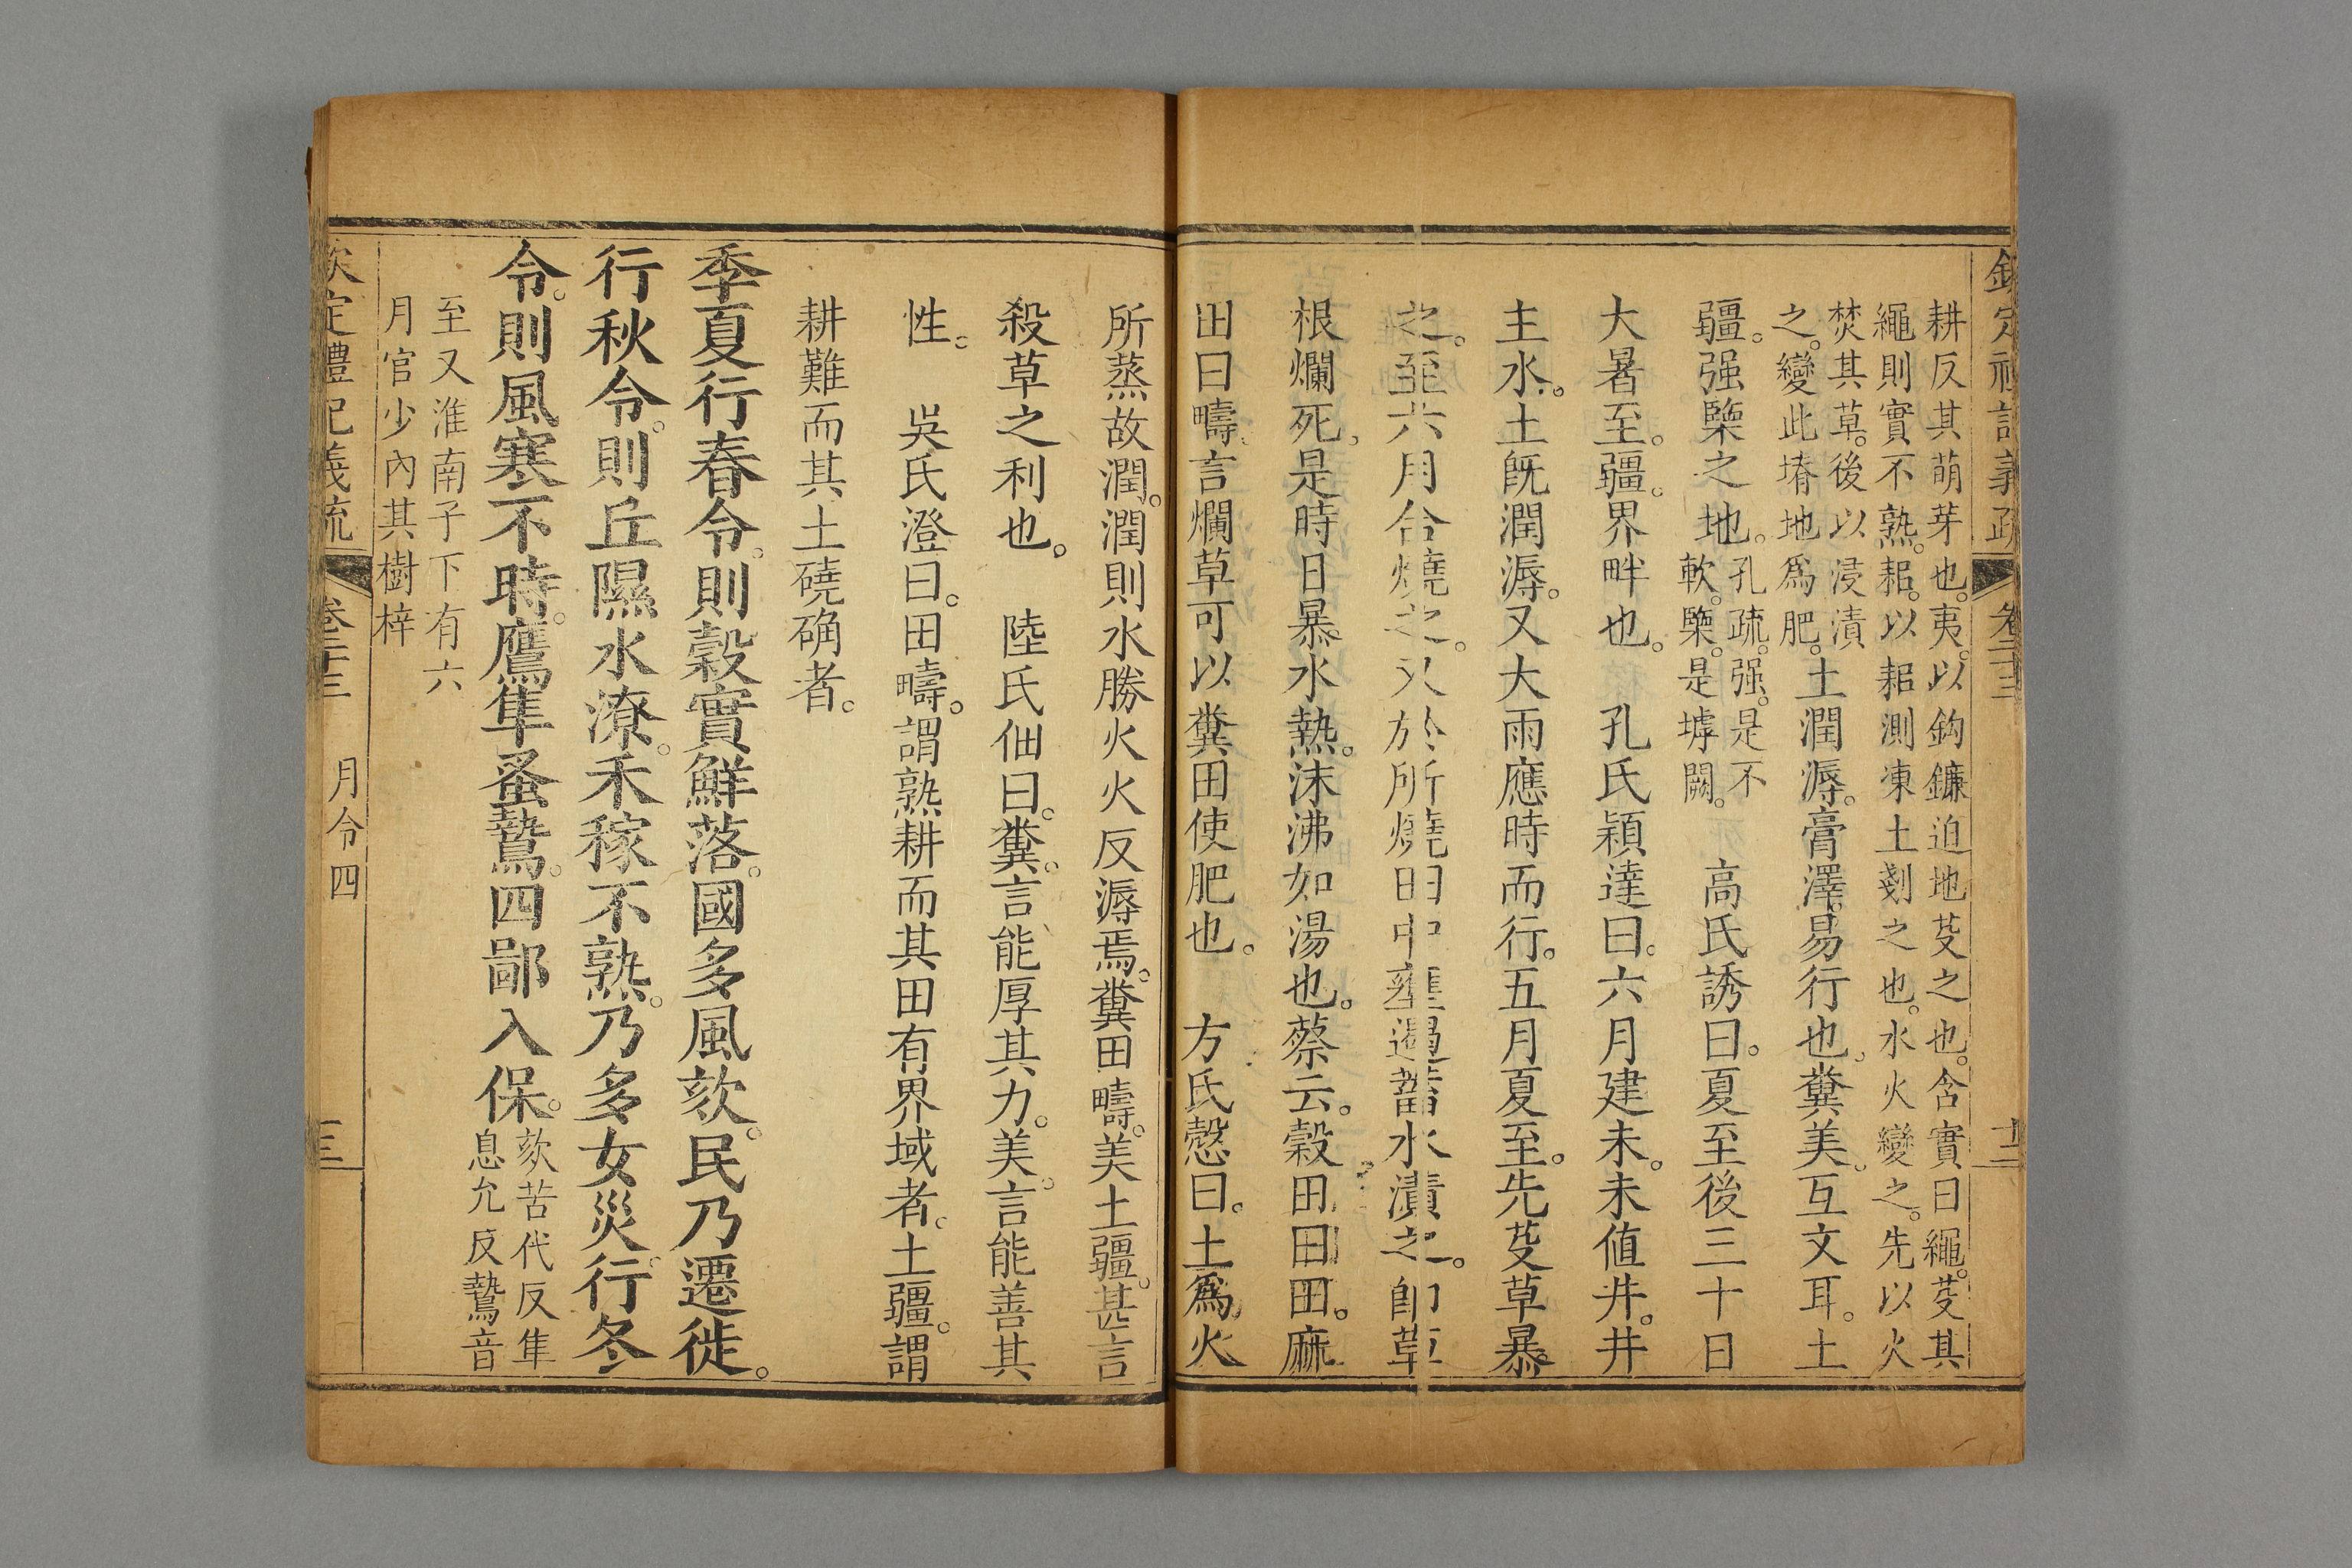 欽定禮記義疏 卷二十三 十二
耕反其萌芽也。夷。以鈎鐮迫地芟之也。含實曰繩。芟其
繩則實不熟。耜。以耜測凍土剗之也。水火變之。先以火
焚其草。後以浸漬
之。變此堾地爲肥。土潤溽。膏澤易行也。糞美。互文耳。土
疆。强㯺之地。
孔疏。强。是不
軟。㯺。是㙤闕。
高氏誘曰。夏至後三十日
大暑至。疆。界畔也。 孔氏穎達曰。六月建未。未值井。井
主水。土旣潤溽。又大雨應時而行。五月夏至。先芟草暴
之。至六月合燒之。又於所燒田中壅遏蓄水漬之。卽草
根爛死。是時日暴水熱。沫沸如湯也。蔡云。穀田曰田。麻
田曰疇。言爛草可以糞田使肥也。 方氏慤曰。土爲火
所蒸故潤。潤則水勝火火反溽焉。糞田疇。美土疆。甚言
殺草之利也。 陸氏佃曰。糞。言能厚其力。美。言能善其
性。 吳氏澄曰。田疇。謂熟耕而其田有界域者。土疆。謂
耕難而其土磽确者。
季夏行春令。則穀實鮮落。國多風欬。民乃遷徙。
行秋令。則丘隰水潦。禾稼不熟。乃多女災。行冬
令。則風寒不時。鷹隼蚤鷙。四鄙入保。
欬苦代反隼
息允反鷙音
至又淮南子下有六
月官少內其樹梓
欽定禮記義疏 卷二十三 月令四 三